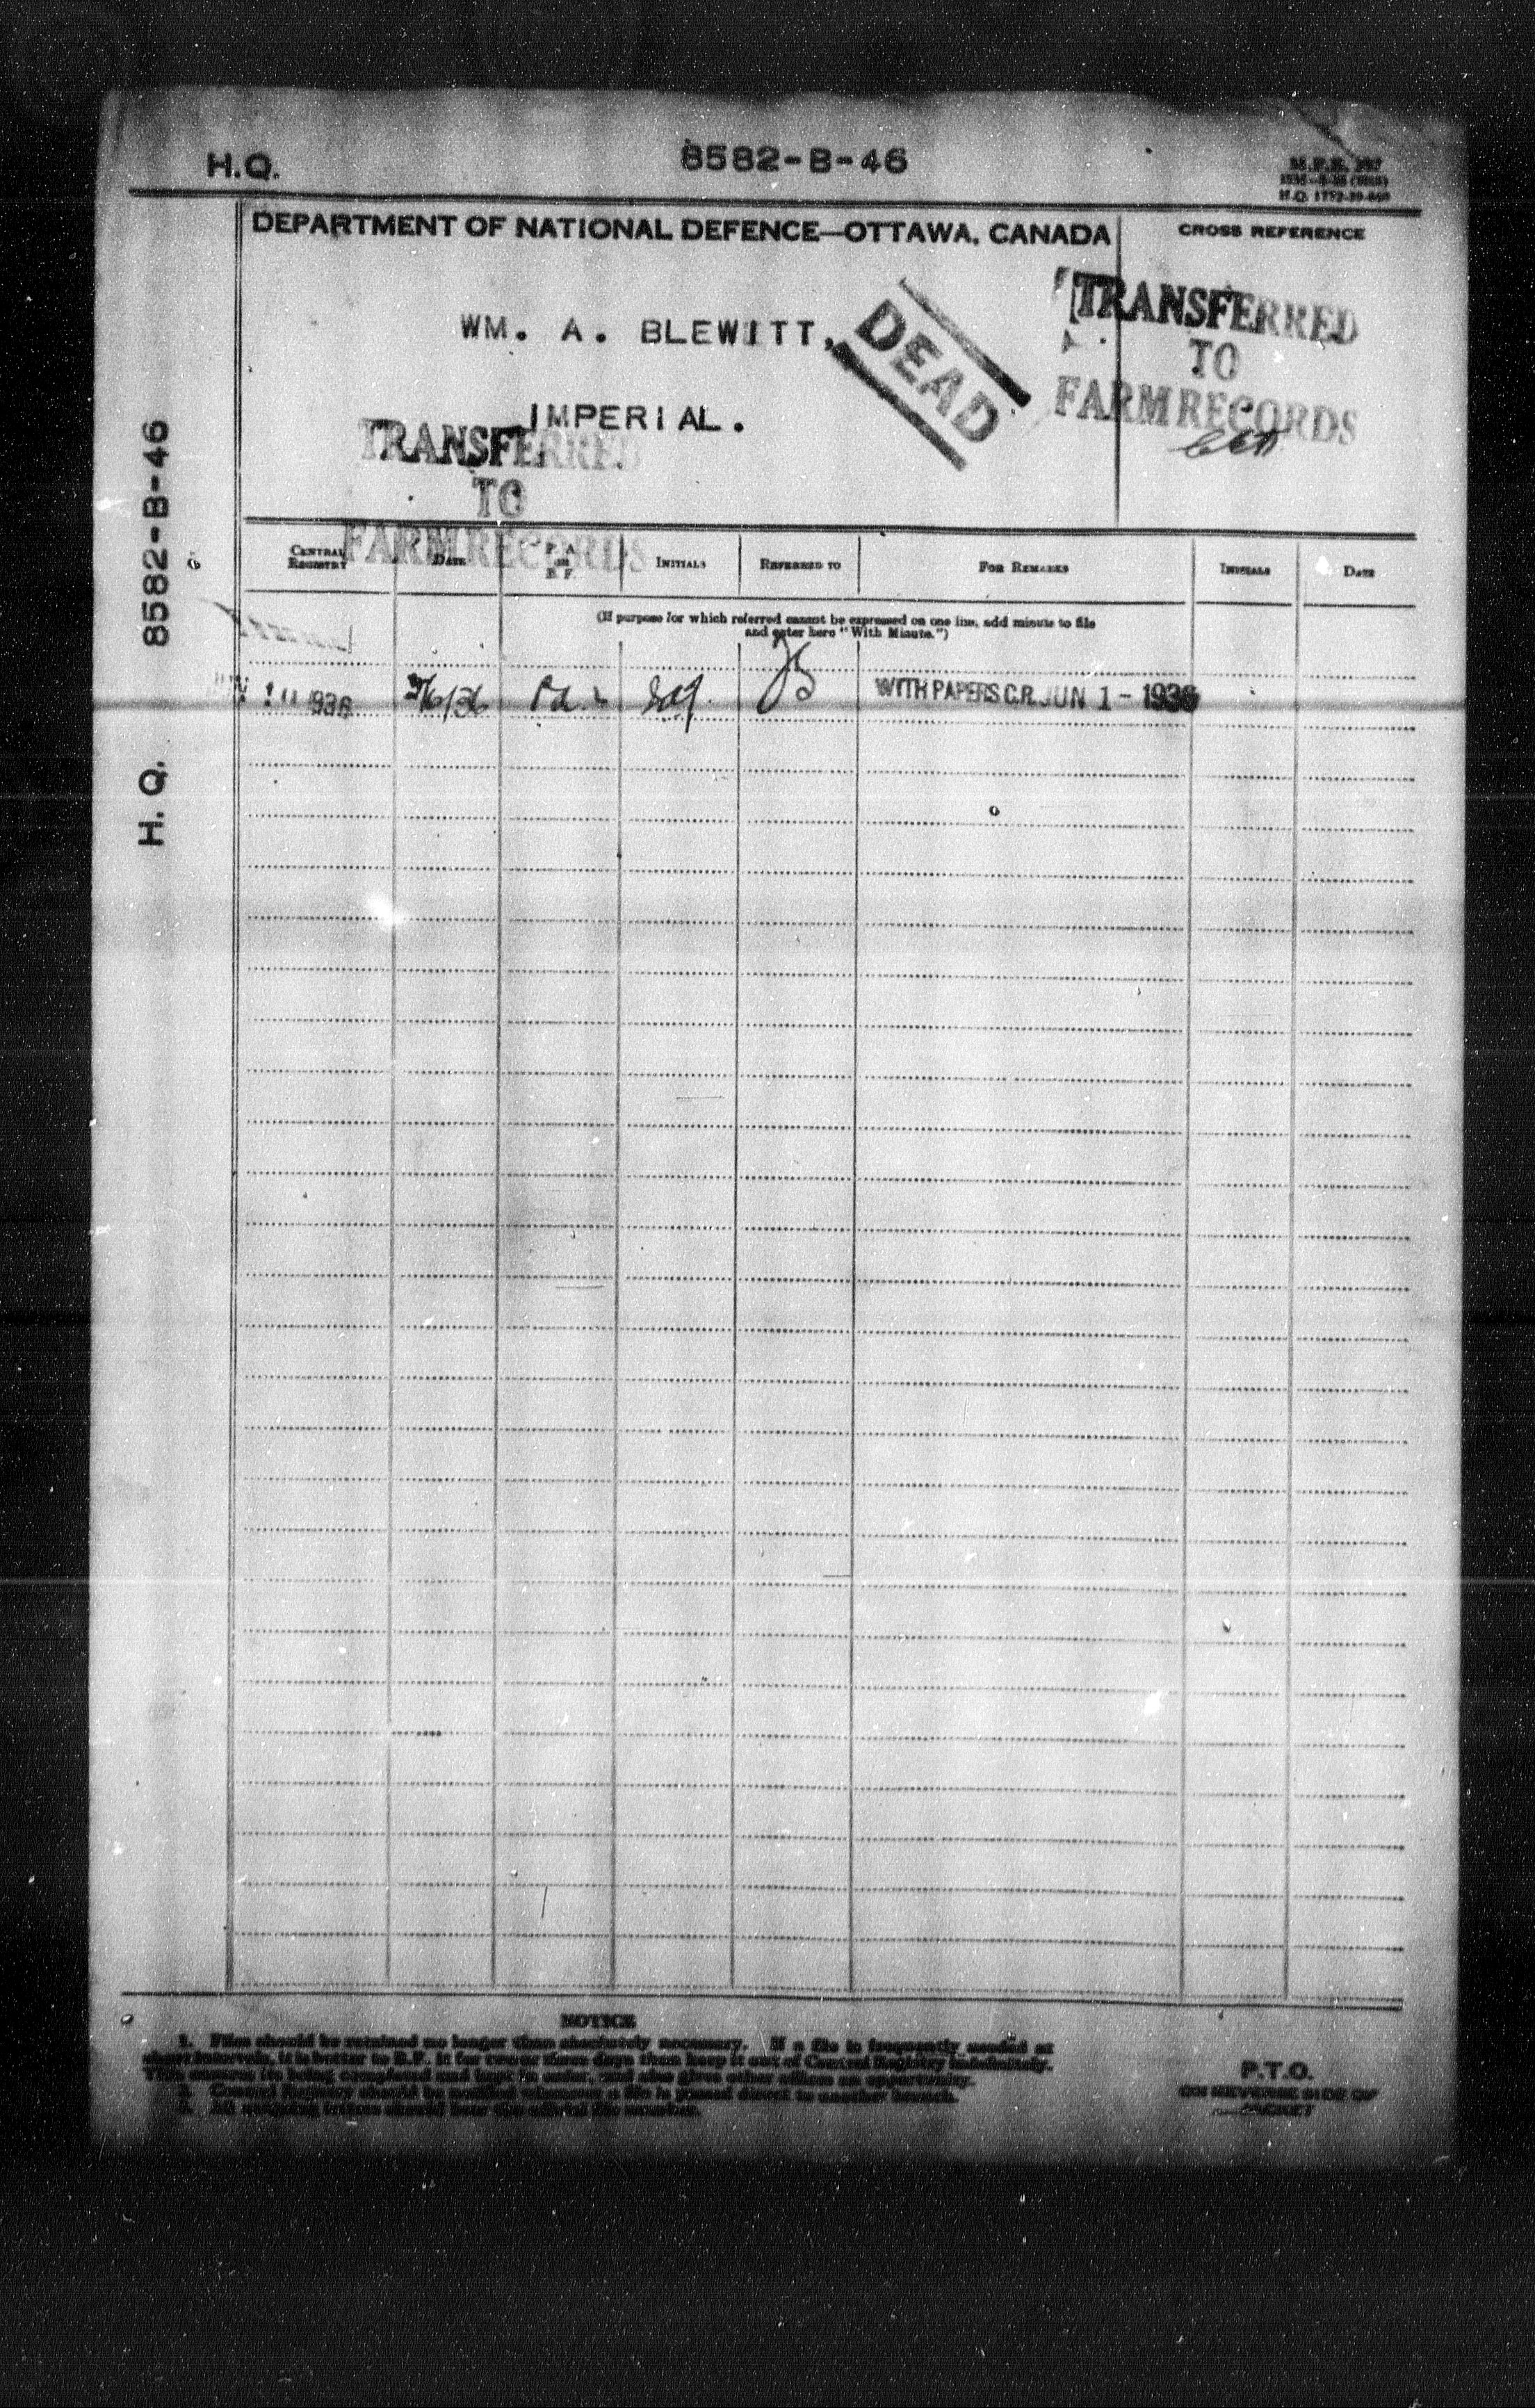 H.Q.
8582-B-46
DEPARTMENT OF NATIONAL DEFENCE—OTTAWA, CANADA
CROSS REFERENCE
WM. A. BLEWITT,
IMPERIAL.
DEAD
TRANSFERRED
TO
FARM RECORDS
TRANSFERRED
TO
FARM RECORDS
8582-B-46
H. Q.
CENTRAL REGISTRY
DATE
P. A. OR B. F.
INITIALS
REFERRED TO
FOR REMARKS
INITIALS
DATE
(If purpose for which referred cannot be expressed on one line, add minute to file
and enter here "With Minute.")
WITH PAPERS C.R. JUN 1 - 1936
NOTICE
1. Files should be retained no longer than absolutely necessary. If a file is frequently needed at
short intervals, it is better to B.F. it for two or three days than keep it out of Central Registry indefinitely.
This ensures its being completed and kept in order, and also gives other offices an opportunity.
2. Central Registry should be notified whenever a file is passed direct to another branch.
3. All outgoing letters should bear the official file number.
P.T.O.
ON REVERSE SIDE OF
JACKET